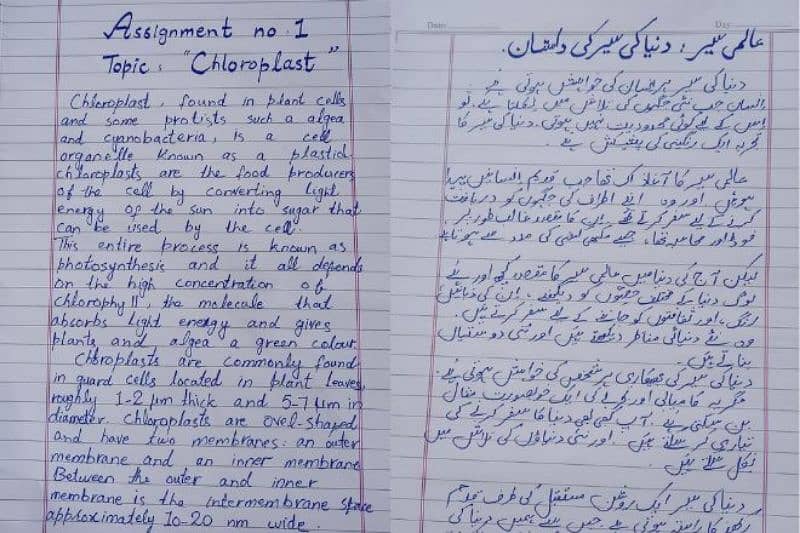 Assignment no. 1
Topic: "Chloroplast"
Chloroplast, found in plant cells
and some protists such a algea
and cyanobacteria, is a cell
organelle known as a plastid.
chloroplasts are the food producers
of the cell by converting light
energy of the sun into sugar that
can be used by the cell.
This entire process is known as
photosynthesis and it all depends
on the high concentration of
chlorophyll, the molecule that
absorbs light energy and gives
plants and algea a green colour.
Chloroplasts are commonly found
in guard cells located in plant leaves,
roughly 1-2 µm thick and 5-7 µm in
diameter. Chloroplasts are ovel-shaped
and have two membranes: an outer
membrane and an inner membrane
Between the outer and inner
membrane is the intermembrane space
approximately 10-20 nm wide.
Date
Day
عالمی سیر: دنیا کی سیر کی داستان.
دنیا کی سیر ہر انسان کی خواہش ہوتی ہے.
انسان جب نئی جگہوں کی تلاش میں نکلتا ہے، تو
اس کے لیے کوئی محدودیت نہیں ہوتی. دنیا کی سیر کا
تجربہ ایک رنگینی کی پیشکش ہے.
عالمی سیر کا آغاز تب ہوا جب قدیم انسان پیدا
ہوئے اور وہ اپنے اطراف کی جگہوں کو دریافت
کرنے کے لیے سفر کرتے تھے. ان کا مقصد غالب طور پر
لیکن آج کی دنیا میں عالمی سیر کا مقصد کچھ اور ہے
لوگ دنیا کے مختلف حصوں کو دیکھنے، ان کی
اور ثقافتوں کو جاننے کے لیے سفر کرتے ہیں.
وہ نئے دنیائی مناظر دیکھتے ہیں اور نئی دوستیاں
بناتے ہیں.
دنیا کی سیر کی ہر شخص کی خواہش ہوتی ہے.
کی ایک خوبصورت مثال
بن سکتی ہے. آپ بھی دنیا کا سفر کرنے کی
تیاری کر سکتے ہیں. اور نئی دنیاؤں کی تلاش میں
نکل سکتے ہیں.
دنیا کی سیر ایک روشن مستقبل کی طرف قدم